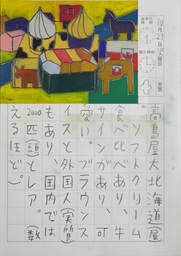 10月21日
高島屋大北海道展
ソフトクリーム
食べ比べあり、牛
サインがあり、可
愛い。ブラウンス
イスと外国人(実質
もあり、国内では
2000匹(頭)とレア。(数
えるほど)。